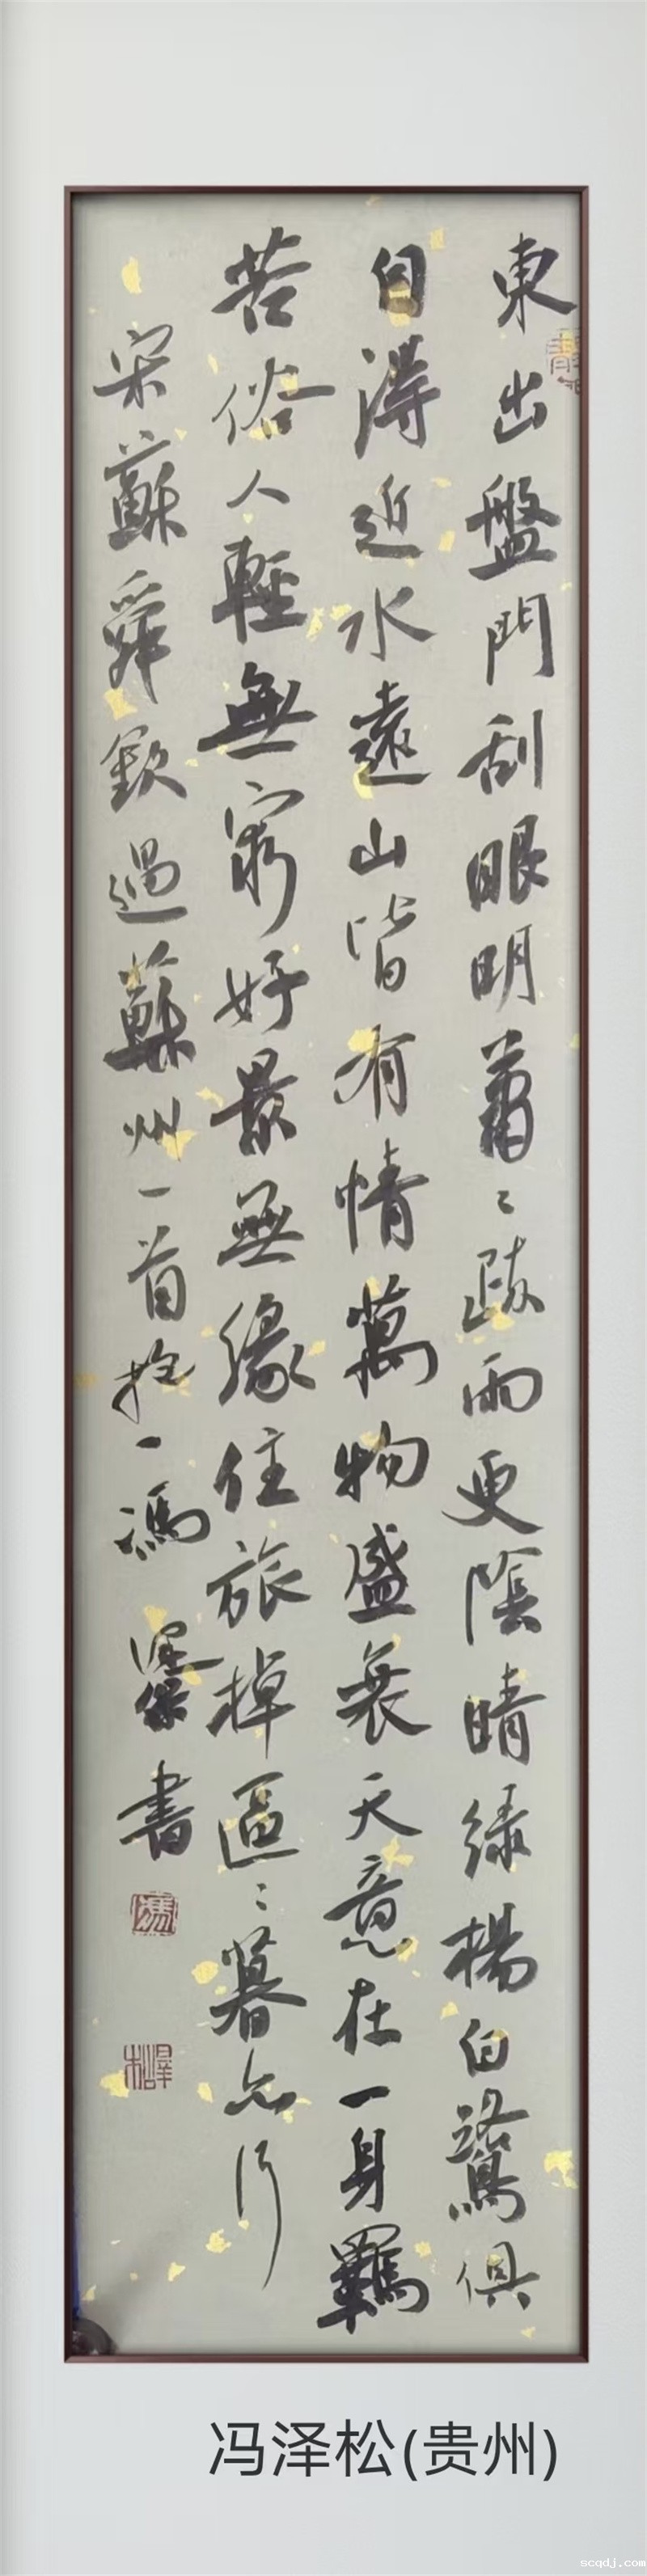 東出盤門刮眼明蕭〻疎雨更陰晴綠楊白鷺俱
自得近水遠山皆有情萬物盛衰天意在一身羈
苦俗人輕無窮好景無緣住旅棹區〻暮亦行
宋蘇舜欽過蘇州一首 一馮澤松書
馮
澤松
冯泽松(贵州)
scqdj.com